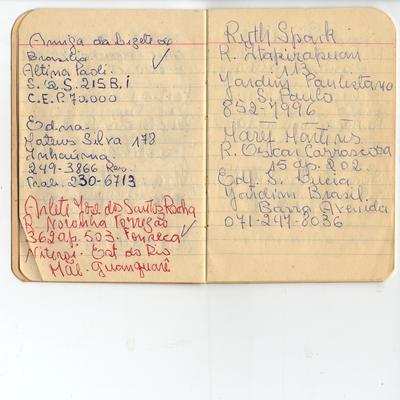 Amiga da Bizete de
Brasília
Altina Paoli.
S.Q.S. 215 B.I
C.E.P. 70.000
Edna.
Mateus Silva 178
Inhaúma.
249-3866 Res.
Trab. 230-6713
Arlete José dos Santos Rocha
R. Noronha Torrezão
362 ap. 503. Fonseca
Niterói. Est do Rio
Mãe. Guanguarê
Ruth Spark.
R. Itapirapuan
113
Jardim Paulistano
S. Paulo
852-4996
Mary Martins
R. Oscar Carrascosa
15 ap. 202.
Edf. S. Lucia
Jardim Brasil.
Barra Avenida
071-247-8036